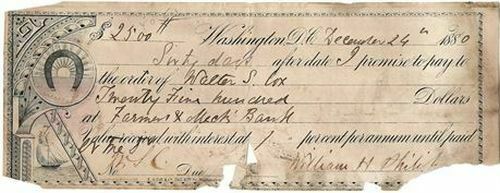 $2500 Washington, D.C. December 26th 1880
Sixty days after date I promise to pay to
the order of Walter S. Cox
Twenty Five hundred Dollars
at Farmers & Mech' Bank
value received with interest at per cent per annum until paid
No Due William H. Philip